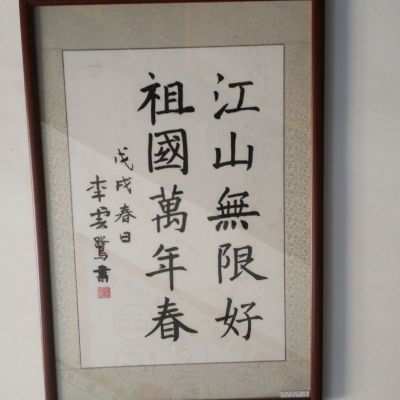 江山無限好
祖國萬年春
戊戌春日
李雲鶯書